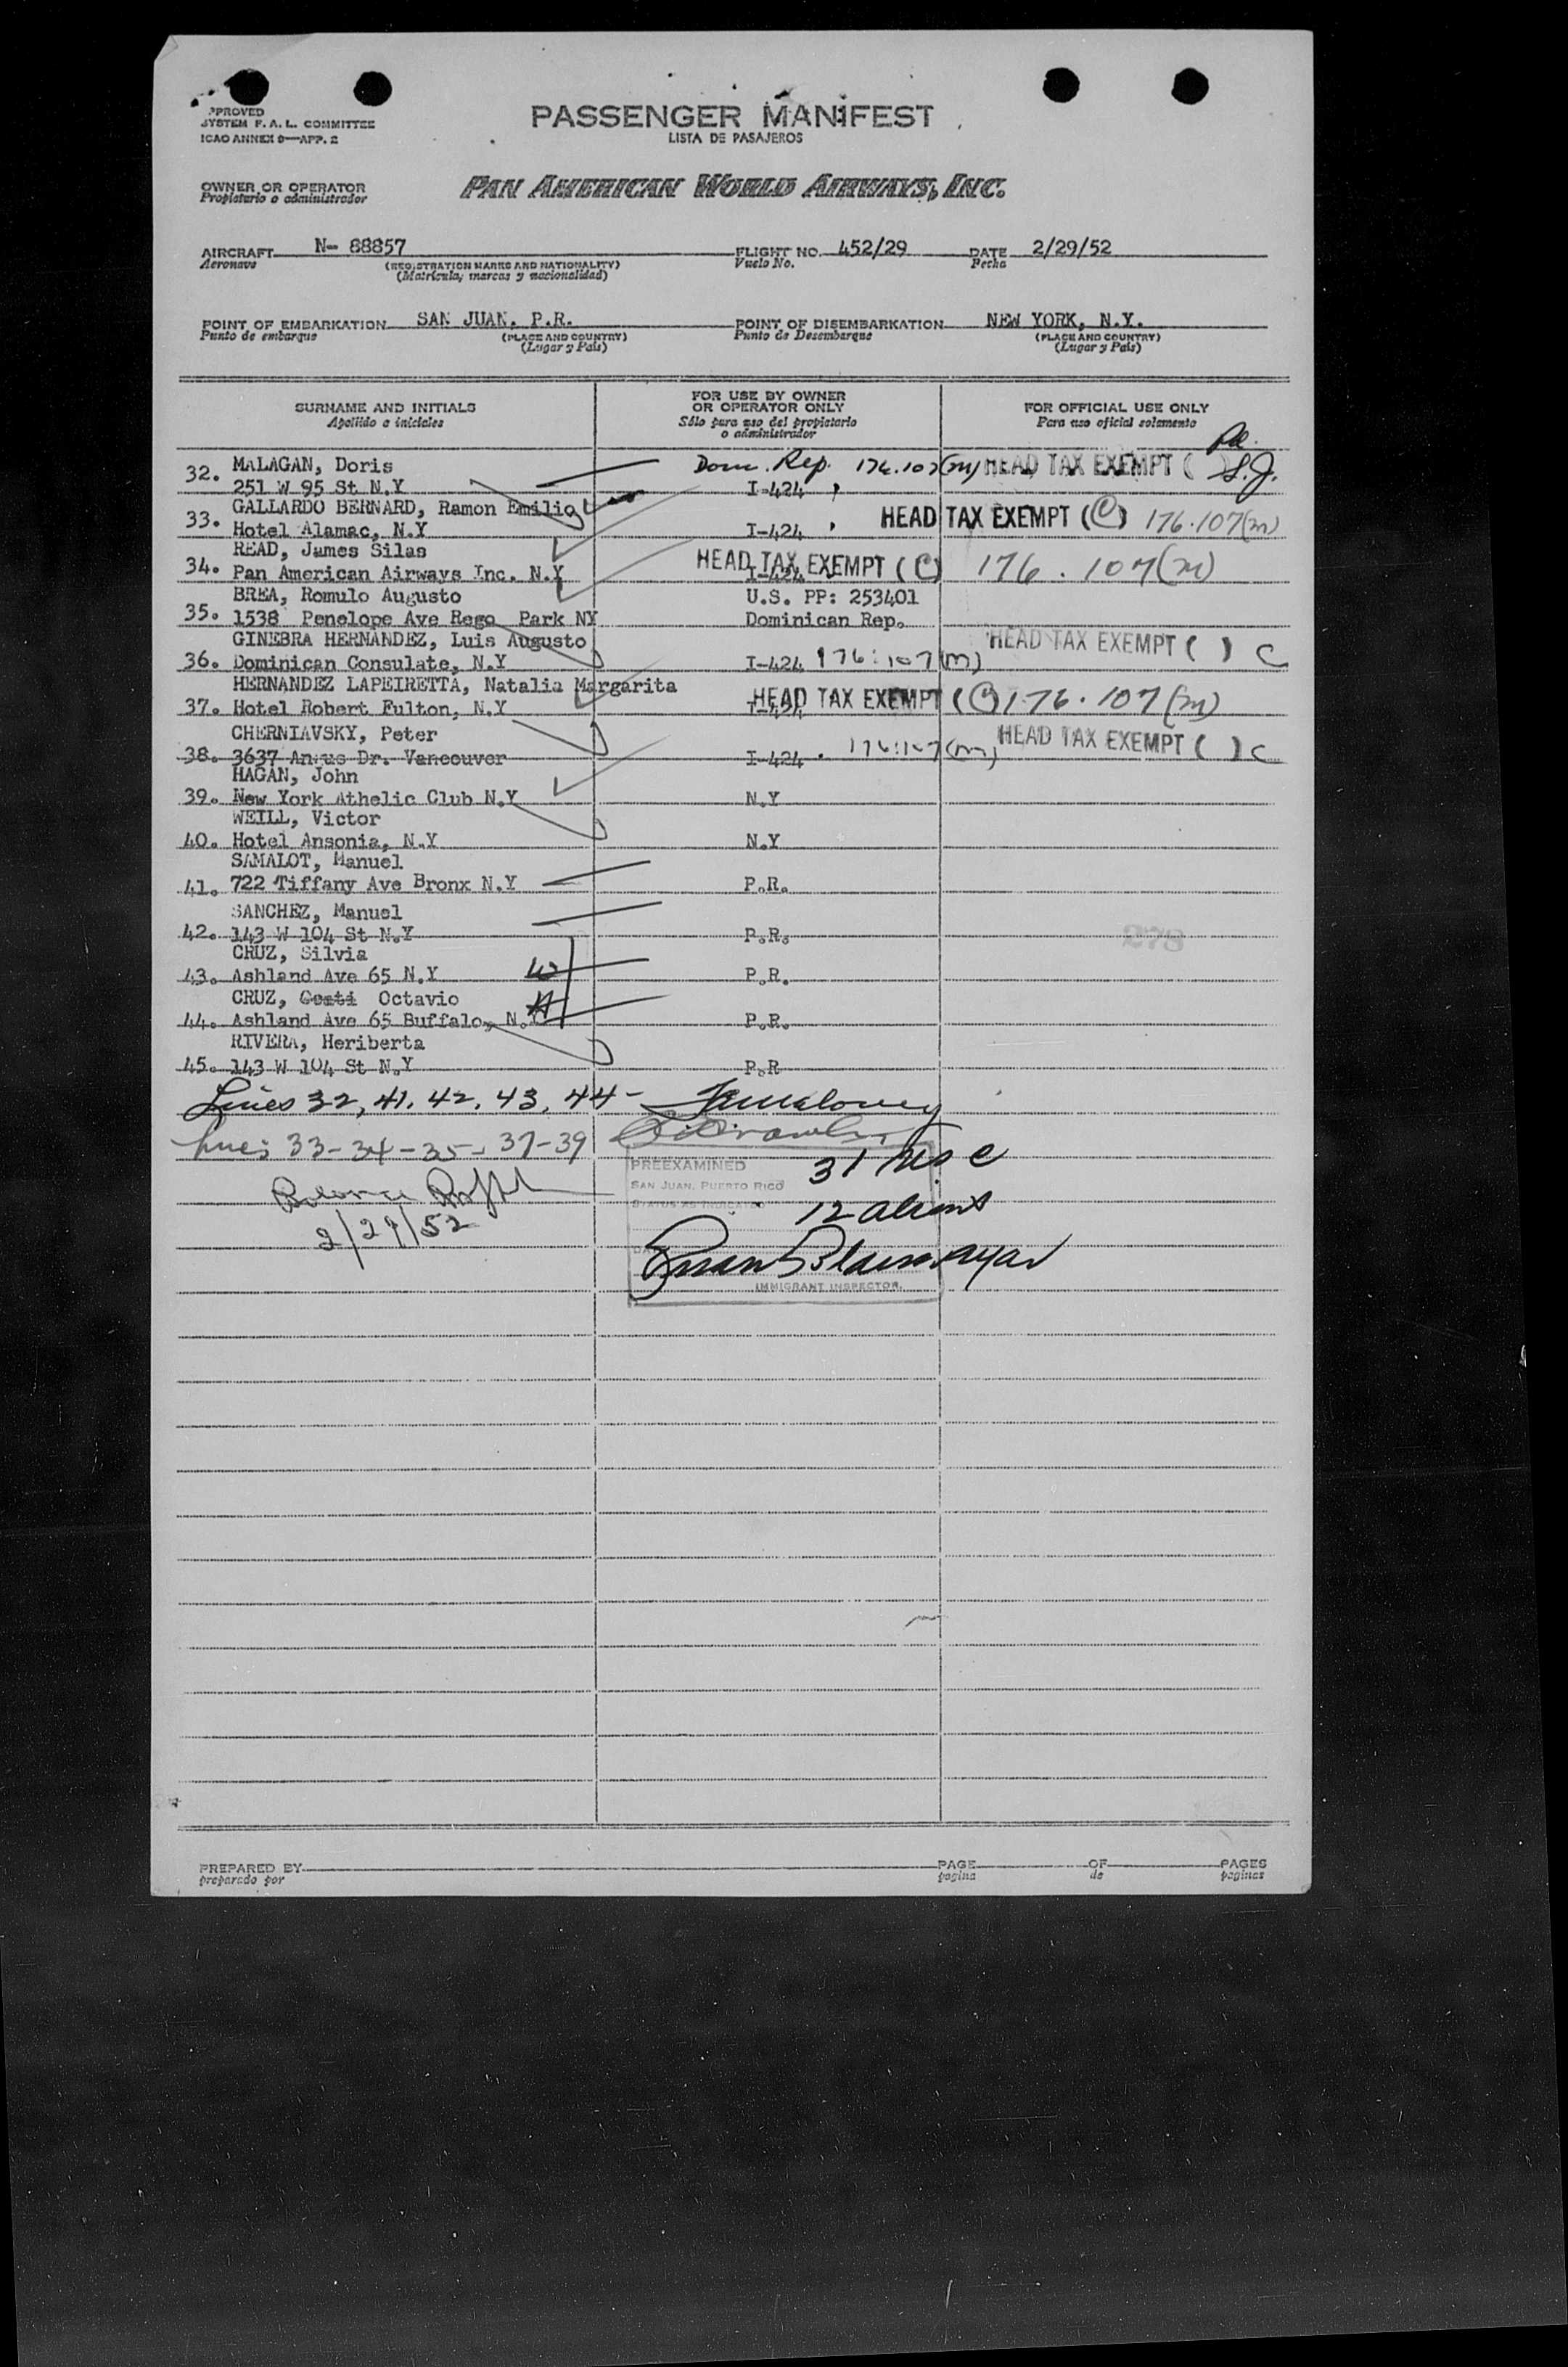 PPROVED
SYSTEM F. A. L. COMMITTEE
ICAO ANNEX 9—APP. 2
PASSENGER MANIFEST
LISTA DE PASAJEROS
OWNER OR OPERATOR
Propietario o administrador
PAN AMERICAN WORLD AIRWAYS, INC.
AIRCRAFT N- 88857 FLIGHT NO. 452/29 DATE 2/29/52
Aeronave (REGISTRATION MARKS AND NATIONALITY) Vuelo No. Fecha
(Matrícula, marcas y nacionalidad)
POINT OF EMBARKATION SAN JUAN, P.R. POINT OF DISEMBARKATION NEW YORK, N.Y.
Punto de embarque (PLACE AND COUNTRY) Punto de Desembarque (PLACE AND COUNTRY)
(Lugar y País) (Lugar y País)
SURNAME AND INITIALS
Apellido e iniciales
FOR USE BY OWNER
OR OPERATOR ONLY
Sólo para uso del propietario
o administrador
FOR OFFICIAL USE ONLY
Para uso oficial solamente
32. MALAGAN, Doris Dom. Rep. 176.107(m) HEAD TAX EXEMPT ( S.J.
251 W 95 St N.Y I-424
33. GALLARDO BERNARD, Ramon Emilio
Hotel Alamac, N.Y I-424 HEAD TAX EXEMPT (C) 176.107(m)
34. READ, James Silas
Pan American Airways Inc. N.Y I-424 HEAD TAX EXEMPT (C) 176.107(m)
BREA, Romulo Augusto U.S. PP: 253401
35. 1538 Penelope Ave Rego Park NY Dominican Rep.
GINEBRA HERNANDEZ, Luis Augusto HEAD TAX EXEMPT ( ) C
36. Dominican Consulate, N.Y I-424 176.107(m)
HERNANDEZ LAPEIRETTA, Natalia Margarita
37. Hotel Robert Fulton, N.Y I-424 HEAD TAX EXEMPT (C) 176.107(m)
CHERNIAVSKY, Peter HEAD TAX EXEMPT ( ) C
38. 3637 Angus Dr. Vancouver I-424 176.107(m)
HAGAN, John
39. New York Athelic Club N.Y N.Y
WEILL, Victor
40. Hotel Ansonia, N.Y N.Y
SAMALOT, Manuel
41. 722 Tiffany Ave Bronx N.Y P.R.
SANCHEZ, Manuel
42. 143 W 104 St N.Y P.R.
278
CRUZ, Silvia
43. Ashland Ave 65 N.Y W P.R.
CRUZ, Octavio H
44. Ashland Ave 65 Buffalo, N.Y P.R.
RIVERA, Heriberta
45. 143 W 104 St N.Y P.R
Lines 32, 41, 42, 43, 44-
Lines 33-34-35-37-39
PREEXAMINED
SAN JUAN, PUERTO RICO
STATUS AS INDICATED
31 US C
12 aliens
Balance
2/29/52
IMMIGRANT INSPECTOR.
PREPARED BY PAGE OF PAGES
preparado por pagina de paginas